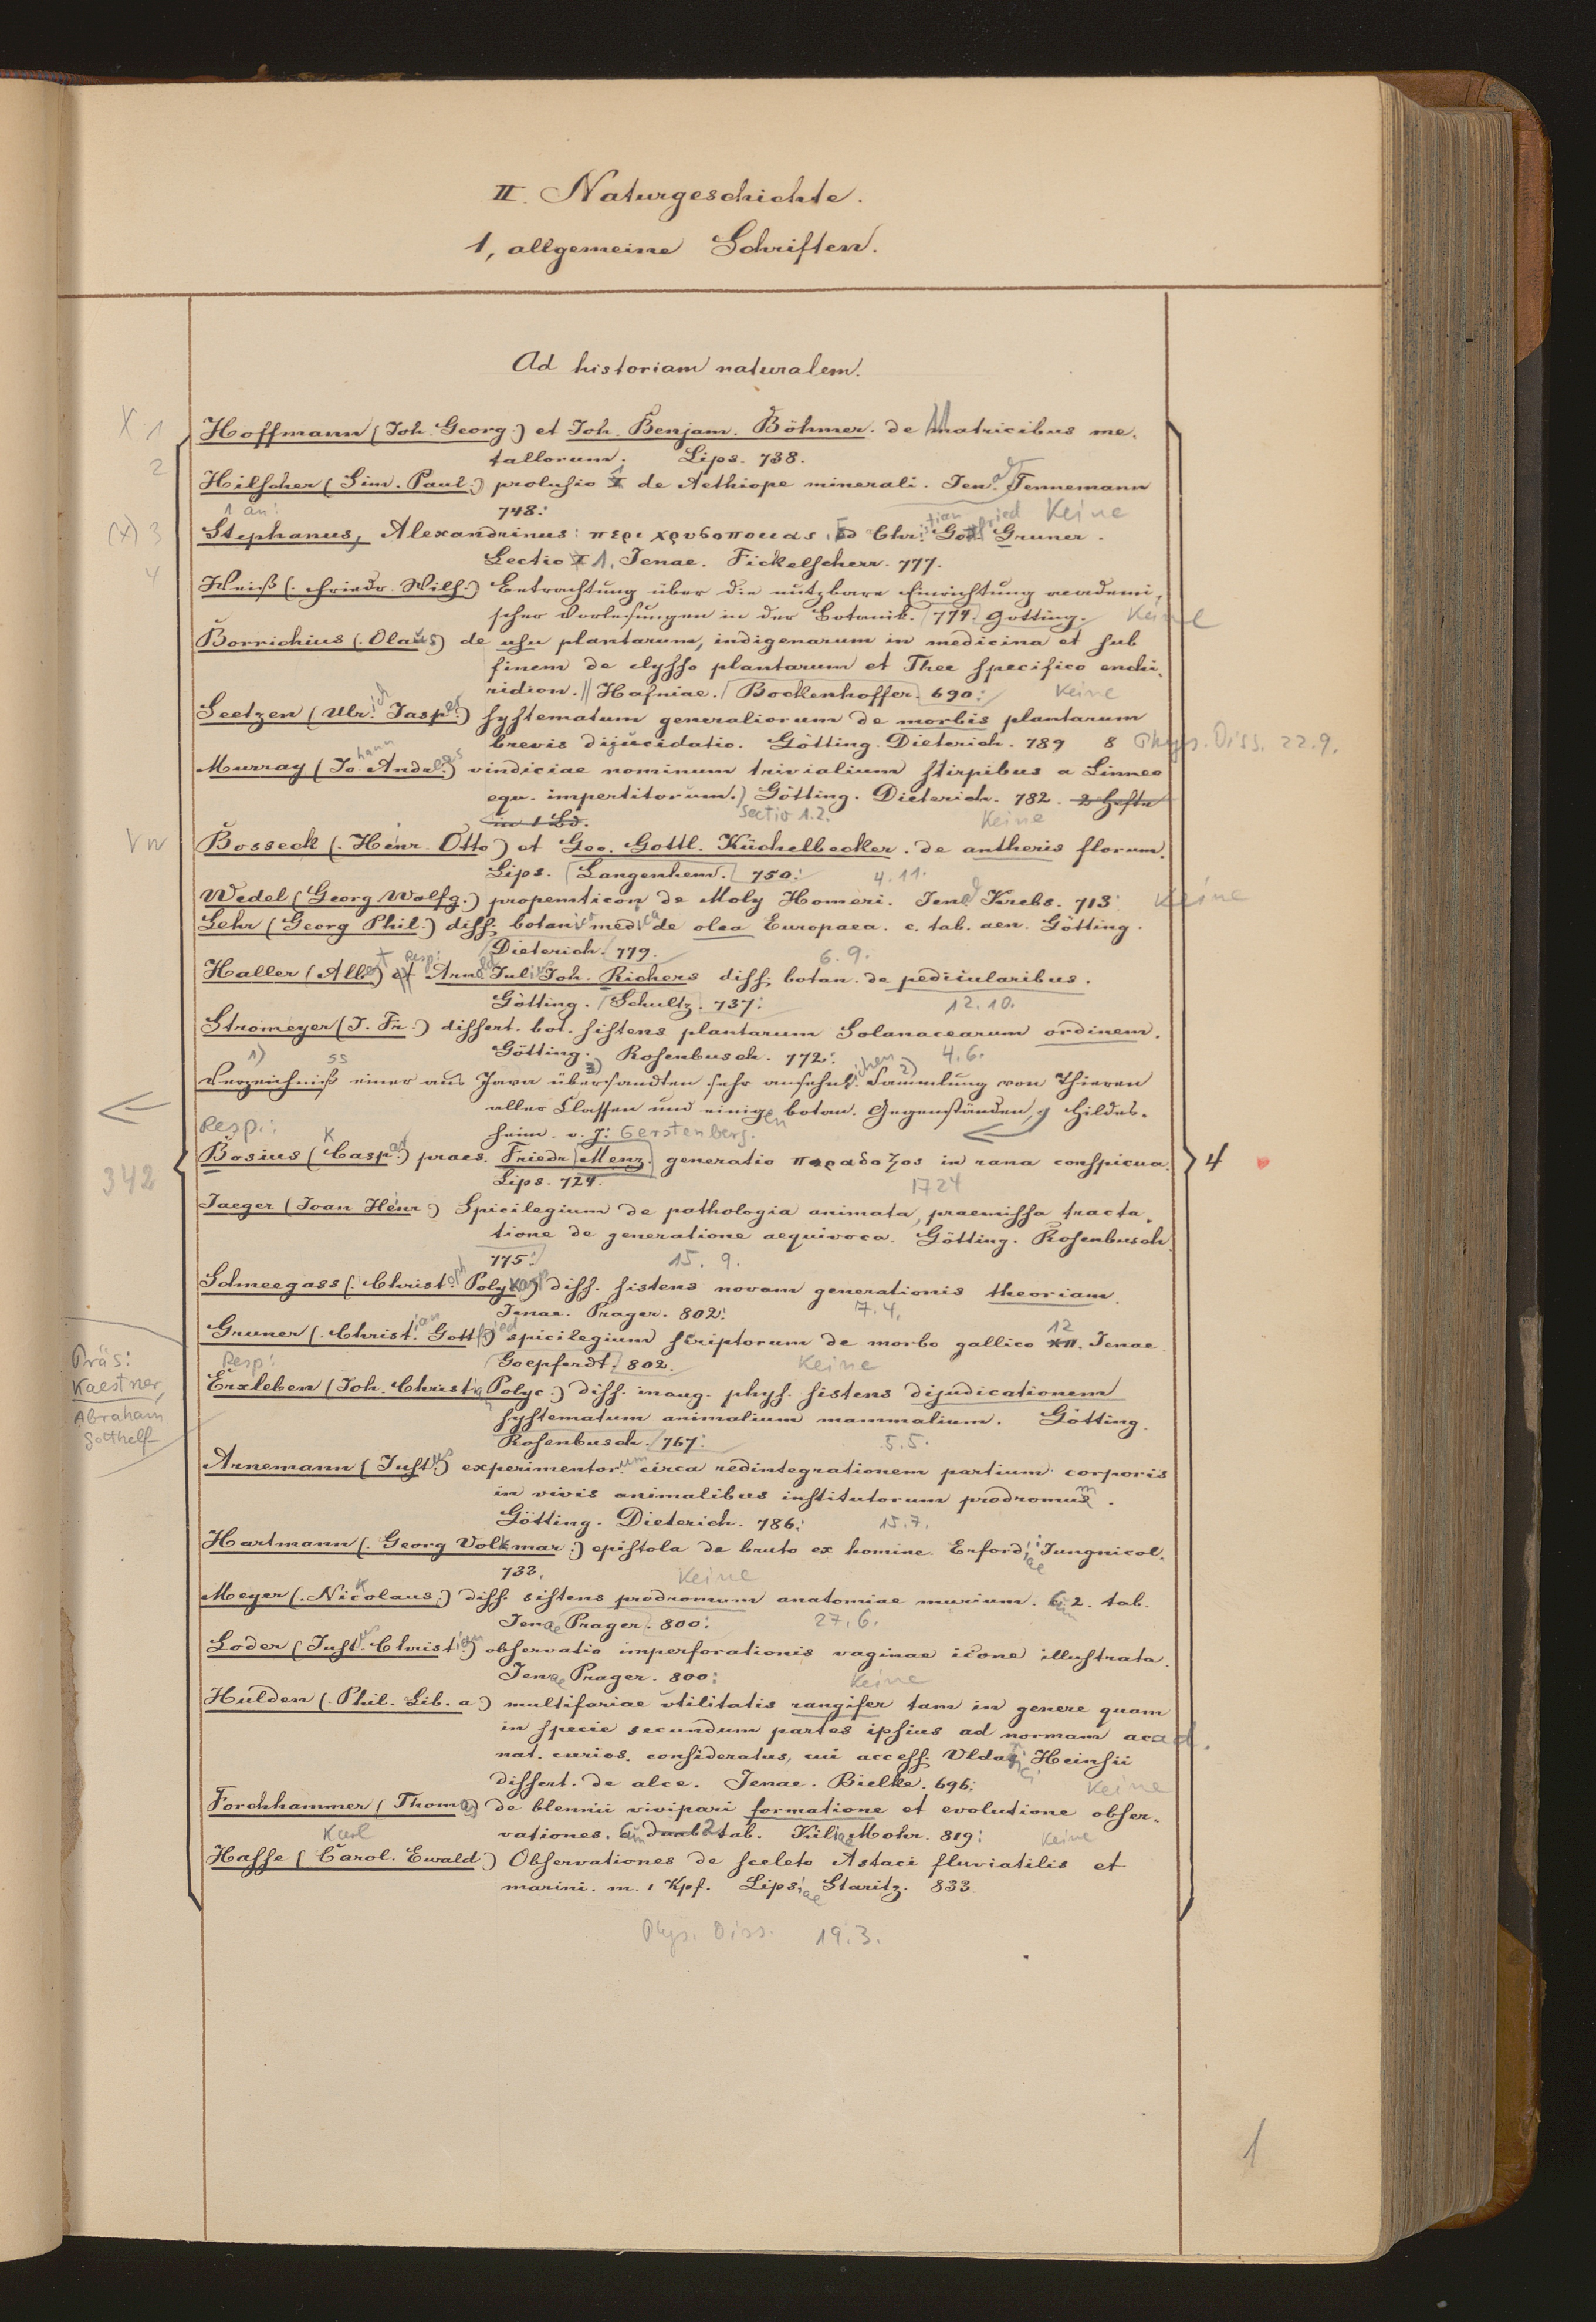 II. Naturgeschichte.
1, allgemeine Schriften.
Ad historiam naturalem.
X 1 Hoffmann (Joh. Georg.) et Joh. Benjam. Böhmer. de Matricibus me-
2 tallorum. Lips. 738.
Hilscher (Sim. Paul.) prolusio I de Aethiope minerali. Jen. Tennemann
748: Keine
(x) 3 Stephanus, Alexandrinus: περι χρυσοποιιας. Ed Chr. Gottfried Gruner.
4 Lectio 1. Jenae. Fickelscherr. 777.
Weiß (. Friedr. Wilh.) Betrachtung über die nutzbare Einrichtung academi-
scher Vorlesungen in der Botanik. 774. Gotting. Keine
Borrichius (. Olaus) de usu plantarum, indigenarum in medicina et sub
finem de clysso plantarum et Thee specifico enchi-
ridion. Hafniae. Bockenhoffer. 690: Keine
Seetzen (Ulrich Jasper) systematum generaliorum de morbis plantarum
brevis dijucidatio. Götting. Dieterich. 789 8 Phys. Diss. 22.9.
Murray (Johann Andreas) vindiciae nominum trivialium stirpibus a Linneo
equ. impertitorum.) Götting. Dieterich. 782. 2 Hefte
in 1 Bd. Sectio 1.2. Keine
Vw Bosseck (. Henr. Otto) et Geo. Gottl. Küchelbecker. de antheris florum.
Lips. Langenhem. 750: 4.11.
Wedel (Georg Wolfg.) propemticon de Moly Homeri. Jen. Krebs. 713: Keine
Lehr (Georg Phil.) diss. botanico medica de olea Europaea. c. tab. aen. Götting.
Dieterich. 779. 6.9.
Haller (Albert) Resp: Arnold Julius Joh. Richers diss. botan. de pedicularibus.
Götting. Schultz. 737: 12.10.
Stromeyer (J. Fr.) dissert. bot. sistens plantarum Solanacearum ordinem.
Götting. Rosenbusch. 772: 4.6.
Verzeichniß einer aus Java übersandten sehr ansehnlichen Sammlung von Thieren
aller Classen und einigen botan. Gegenständen, Hildes-
heim. v. J: Gerstenberg.
Resp.:
342 Bosius (Caspar) praes. Friedr Menz. generatio παραδοξος in rana conspicua. 4
Lips. 724. 1724
Jaeger (Joan Henr.) Spicilegium de pathologia animata, praemissa tracta-
tione de generatione aequivoca. Götting. Rosenbusch
775: 15. 9.
Schneegass (. Christoph Polykarp) diss. sistens novam generationis theoriam.
Jenae. Prager. 802: 7.4.
Gruner (. Christian Gottfried) spicilegium scriptorum de morbo gallico XII. 12 Jenae.
Goepferdt. 802. Keine
Präs: Kaestner, Abraham Gotthelf
Resp:
Erxleben (Joh. Christian Polyc.) diss. inaug. phys. sistens dijudicationem
systematum animalium mammalium. Götting.
Rosenbusch. 767: 5.5.
Arnemann (Justus) experimentorum circa redintegrationem partium corporis
in vivis animalibus institutorum prodromus.
Götting. Dieterich. 786: 15.7.
Hartmann (. Georg Volkmar.) epistola de bruto ex homine. Erfordiae Jungnicol.
732. Keine
Meyer (. Nicolaus.) diss. sistens prodromum anatomiae murium. Cum 2. tab.
Jenae Prager. 800: 27.6.
Loder (Justus Christian) observatio imperforationis vaginae icone illustrata.
Jenae Prager. 800: Keine
Hulden (. Phil. Lib. a.) multifariae utilitatis rangifer tam in genere quam
in specie secundum partes ipsius ad normam acad.
nat. curios. consideratus, cui access. Uldarici Heinsii
dissert. de alce. Jenae. Bielke. 696: Keine
Forchhammer (Thomas) de blennii vivipari formatione et evolutione obser-
vationes. Cum duab 2 tab. Kiliae Mohr. 819: Keine
Karl
Hasse (Carol. Ewald.) Observationes de sceleto Astaci fluviatilis et
marini. m. 1 Kpf. Lipsiae Staritz. 833.
Phys. Diss. 19.3.
1